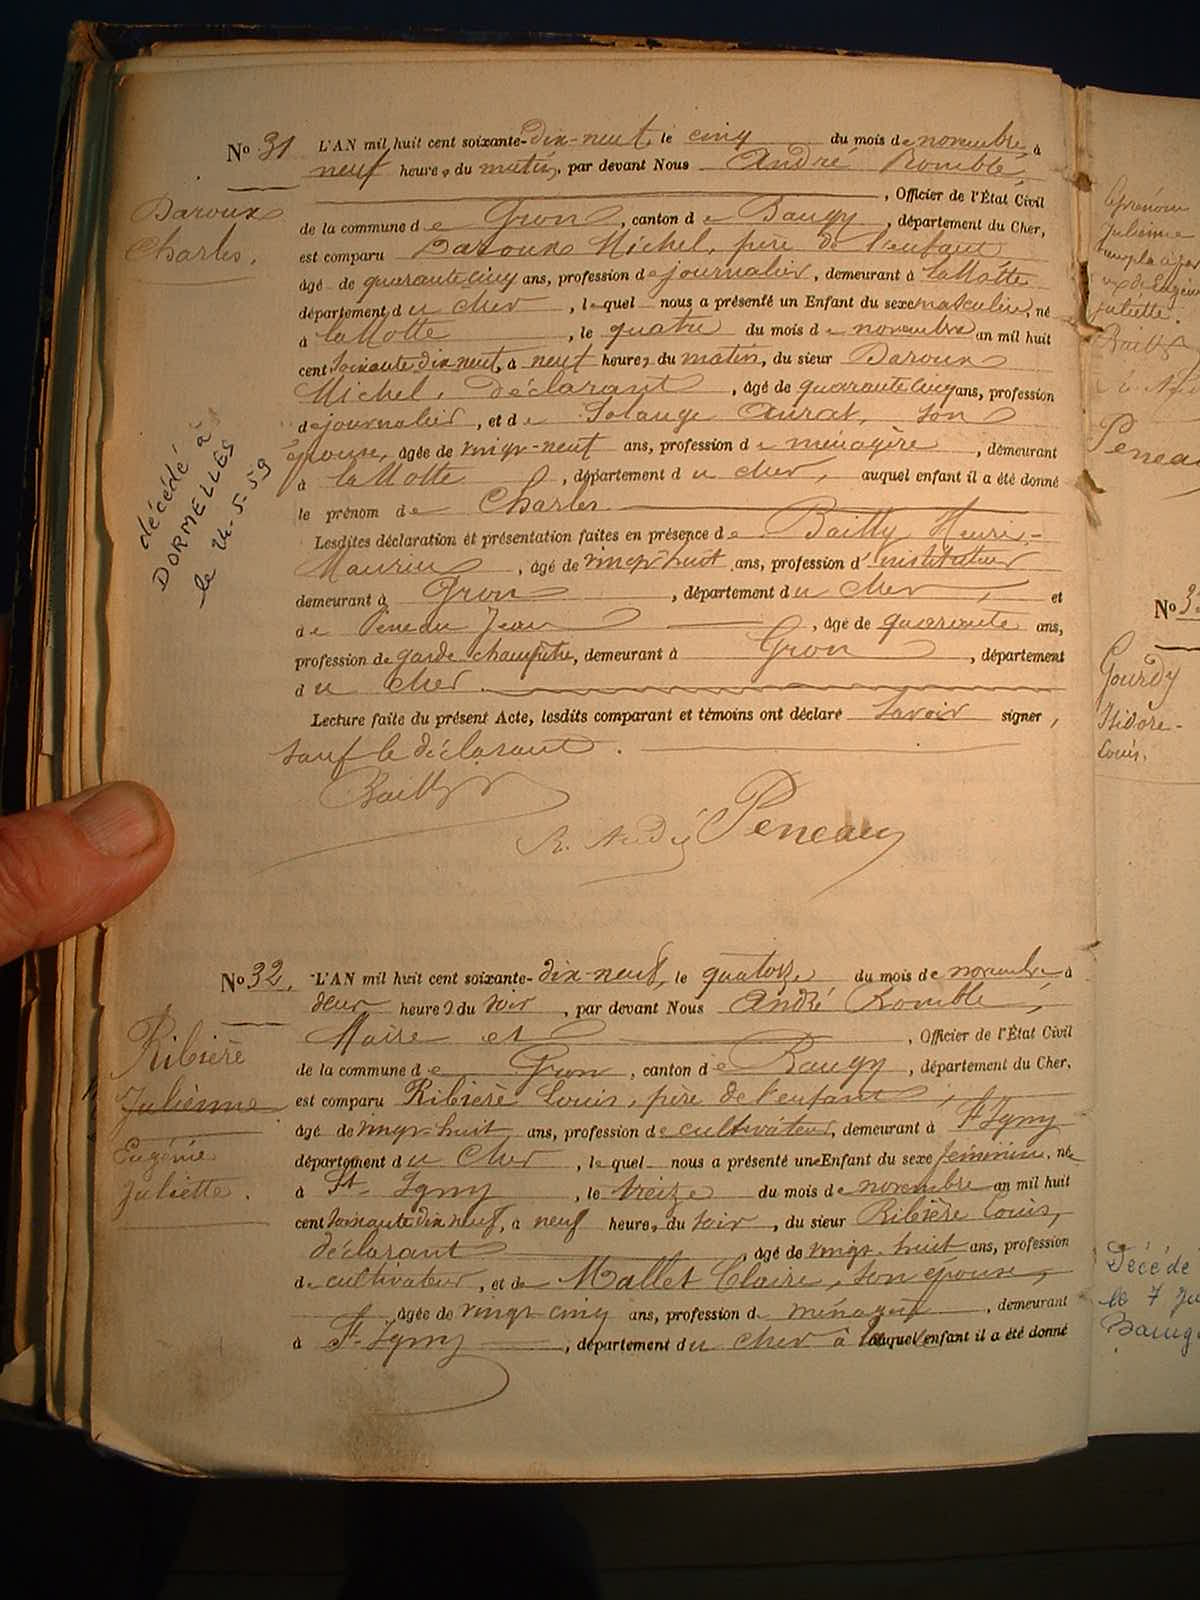 No 31
Daroux
Charles.
décédé à
DORMELLES
le 24-5-59
L'AN mil huit cent soixante-dix-neuf, le cinq du mois de novembre à
neuf heures du matin, par devant Nous André Romble,
, Officier de l'État Civil
de la commune de Gron, canton de Baugy, département du Cher,
est comparu Daroux Michel, père de l'enfant
âgé de quarante cinq ans, profession de journalier, demeurant à la Motte
département du Cher, lequel nous a présenté un Enfant du sexe masculin, né
à la Motte, le quatre du mois de novembre an mil huit
cent soixante dix neuf, à neuf heures du matin, du sieur Daroux
Michel, déclarant, âgé de quarante cinq ans, profession
de journalier, et de Solange Aurat, son
épouse, âgée de vingt-neuf ans, profession de ménagère, demeurant
à la Motte, département du Cher, auquel enfant il a été donné
le prénom de Charles.
Lesdites déclaration et présentation faites en présence de Bailly Henri-
Maurice, âgé de vingt huit ans, profession d'instituteur
demeurant à Gron, département du Cher, et
de Peneau Jean, âgé de quarante ans,
profession de garde champêtre, demeurant à Gron, département
du Cher.
Lecture faite du présent Acte, lesdits comparant et témoins ont déclaré savoir signer,
sauf le déclarant.
Bailly
R. André Peneau
No 32.
Ribière
Julienne
Eugénie
Juliette.
L'AN mil huit cent soixante-dix-neuf, le quatorze du mois de novembre à
deux heures du soir, par devant Nous André Romble,
Maire et, Officier de l'État Civil
de la commune de Gron, canton de Baugy, département du Cher,
est comparu Ribière Louis, père de l'enfant,
âgé de vingt-huit ans, profession de cultivateur, demeurant à St Igny
département du Cher, lequel nous a présenté un Enfant du sexe féminin, née
à St Igny, le treize du mois de novembre an mil huit
cent soixante dix neuf, à neuf heures du soir, du sieur Ribière Louis,
déclarant, âgé de vingt-huit ans, profession
de cultivateur, et de Mallet Claire, son épouse,
, âgée de vingt-cinq ans, profession de ménagère, demeurant
à St Igny, département du Cher à laquel enfant il a été donné
le prénom
Julienne
juliette.
Bailly
Peneau
No 3
Gourdy
Isidore-
Louis.
Décédé
le 7
Baugy